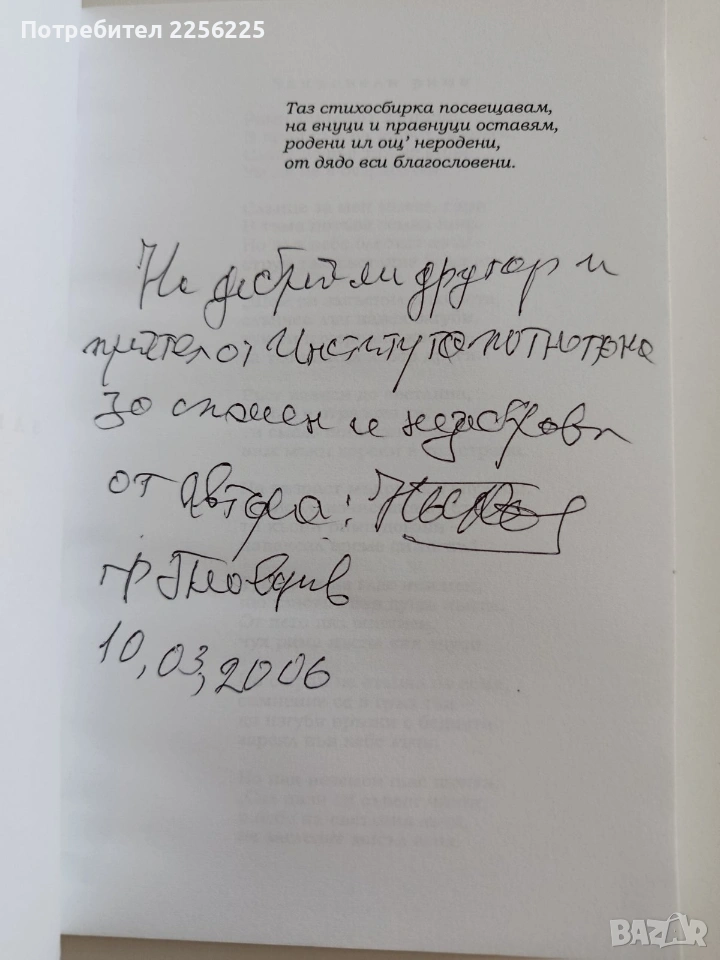 Потребител 2256225
Таз стихосбирка посвещавам,
на внуци и правнуци оставям,
родени ил ощ' неродени,
от дядо вси благословени.
На добрия ми другар и
приятел от Института по тютюна
За спомен и
от автора:
гр Пловдив
10,03,2006
BAZAR